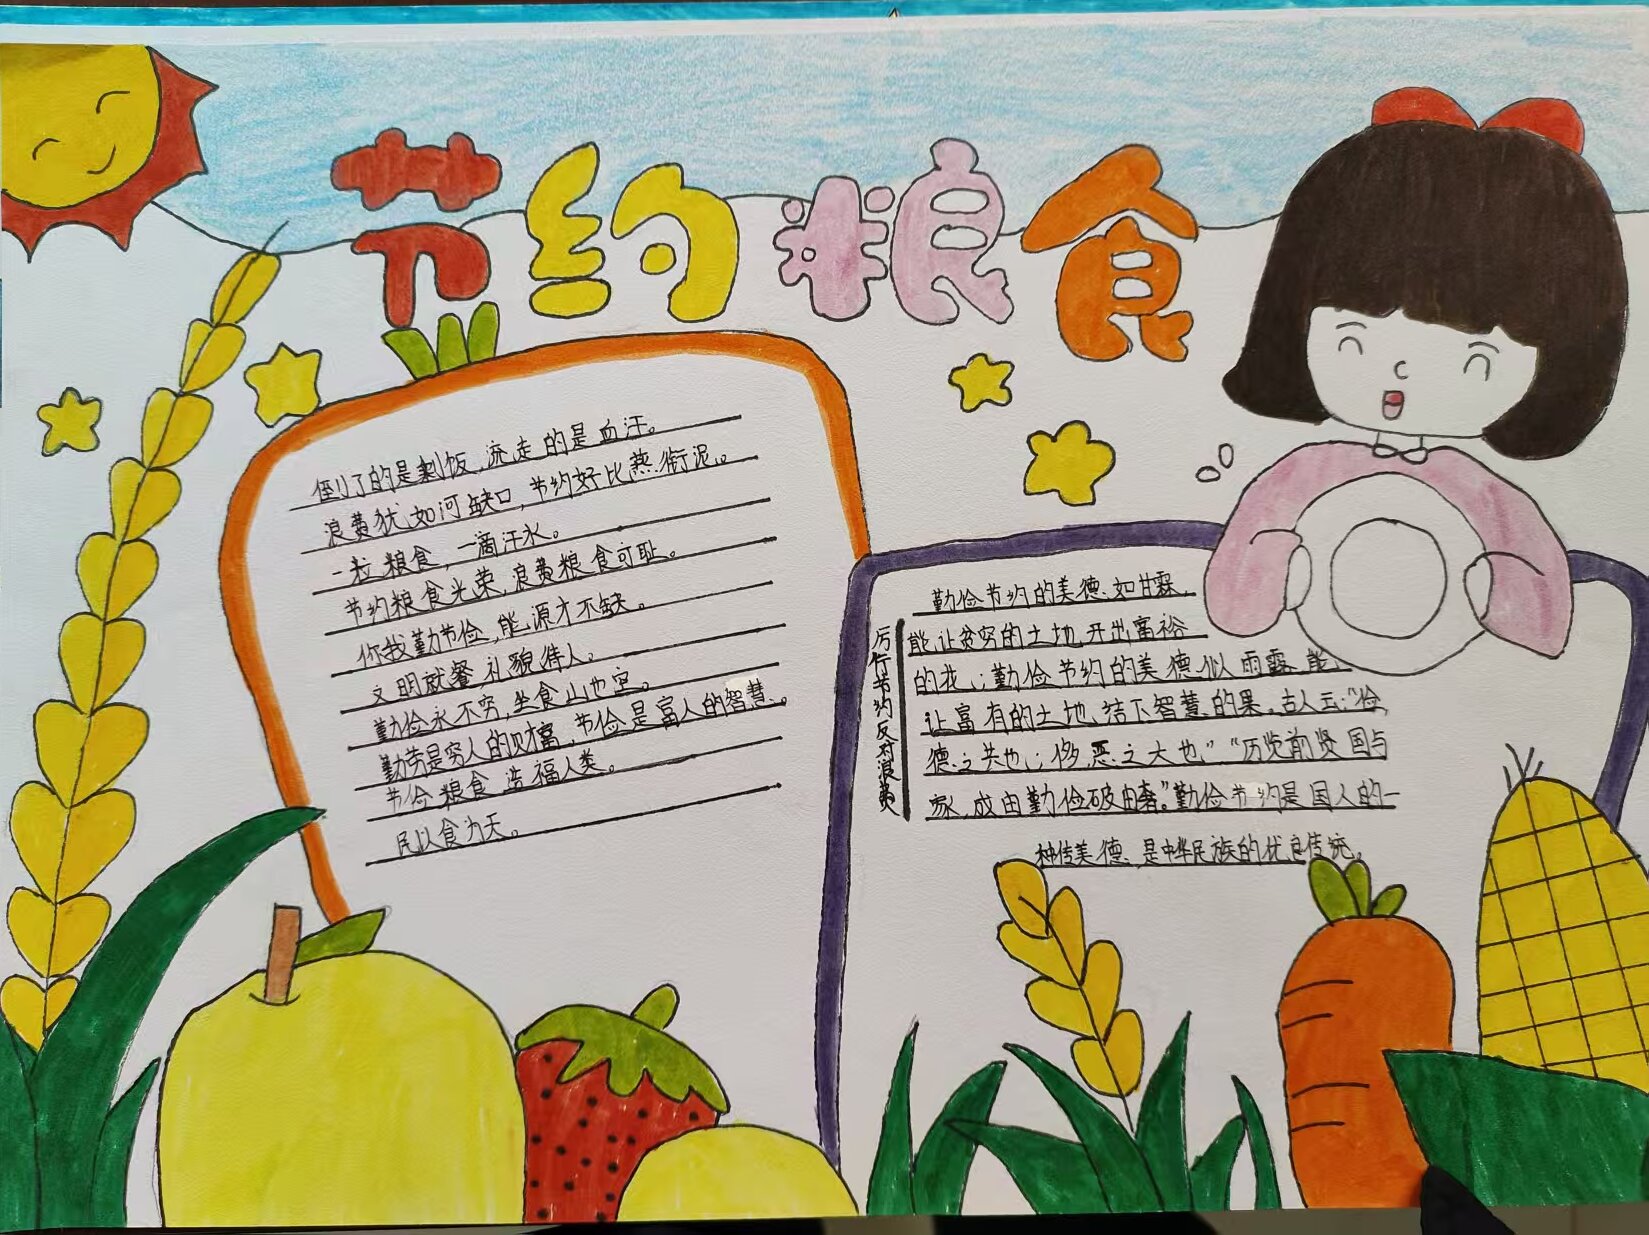 节约粮食
倒了的是剩饭,流走的是血汗。
浪费犹如河缺口,节约好比燕衔泥。
一粒粮食,一滴汗水。
节约粮食光荣,浪费粮食可耻。
你我勤节俭,能源才不缺。
文明就餐 礼貌待人。
勤俭永不穷,坐食山也空。
勤劳是穷人的财富,节俭是富人的智慧。
节俭粮食 造福人类。
民以食为天。
厉行节约反对浪费
勤俭节约的美德如甘霖,
能让贫穷的土地开出富裕
的花;勤俭节约的美德似雨露,能
让富有的土地结下智慧的果。古人云:“俭,
德之共也;侈,恶之大也”“历览前贤国与
家,成由勤俭破由奢。”勤俭节约是国人的一
种传美德,是中华民族的优良传统。